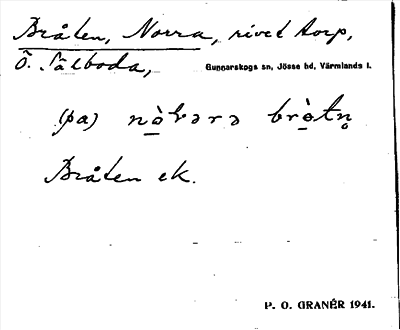 Bråten, Norra, rivet torp,
Ö. Sälboda,
Gunnarskogs sn, Jösse hd, Värmlands l.
(pa) nò̱rərə brò̱tn̥
Bråten ek.
P. O. GRANÉR 1941.